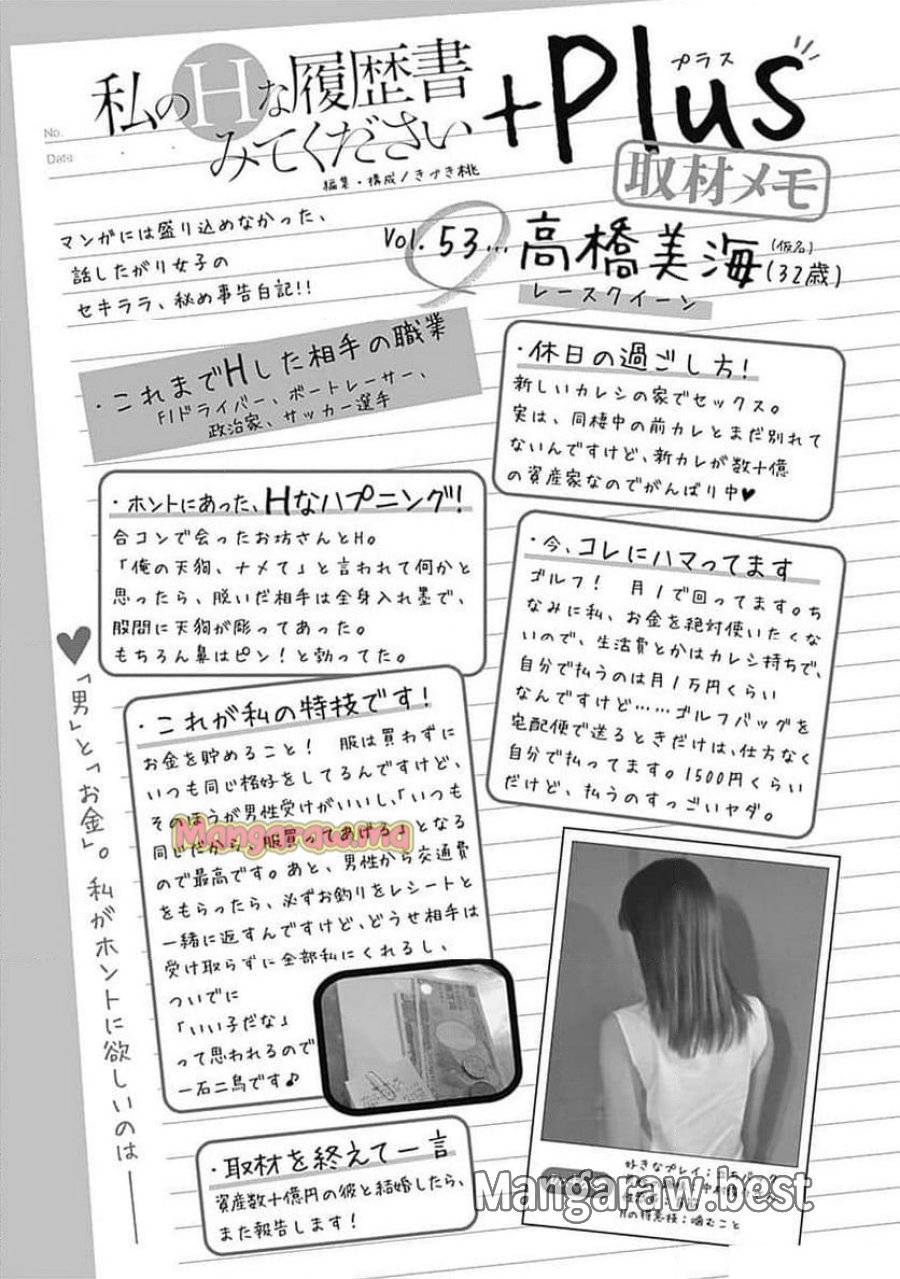 No.
Date
私のHな履歴書
みてください
+Plus
プラス
取材メモ
編集・構成/きづき桃
マンガには盛り込めなかった、
話したがり女子の
セキララ、秘め事告白記!!
Vol. 53...
高橋美海
(仮名)
(32歳)
レースクイーン
・これまでHした相手の職業
F1ドライバー、ボートレーサー、
政治家、サッカー選手
・休日の過ごし方!
新しいカレシの家でセックス。
実は、同棲中の前カレとまだ別れて
ないんですけど、新カレが数十億
の資産家なのでがんばり中♥
・ホントにあった、Hなハプニング!
合コンで会ったお坊さんとH。
「俺の天狗、ナメて」と言われて何かと
思ったら、脱いだ相手は全身入れ墨で、
股間に天狗が彫ってあった。
もちろん鼻はピン!と勃ってた。
・今、コレにハマってます
ゴルフ! 月1で回ってます。ち
なみに私、お金を絶対使いたくな
いので、生活費とかはカレシ持ちで、
自分で払うのは月1万円くらい
なんですけど……ゴルフバッグを
宅配便で送るときだけは、仕方なく
自分で払ってます。1500円くらい
だけど、払うのすっごいヤダ。
・これが私の特技です!
お金を貯めること! 服は買わずに
いつも同じ格好をしてるんですけど、
そのほうが男性受けがいいし、「いつも
同じだから、服買ってあげる」となる
ので最高です。あと、男性から交通費
をもらったら、必ずお釣りをレシートと
一緒に返すんですけど、どうせ相手は
受け取らずに全部私にくれるし、
ついでに
「いい子だな」
って思われるので
一石二鳥です♪
Mangaraw.ma
♥「男」と「お金」。私がホントに欲しいのは――
・取材を終えて一言
資産数十億円の彼と結婚したら、
また報告します!
好きなプレイ:
Hの得意技:噛むこと
Mangaraw.best